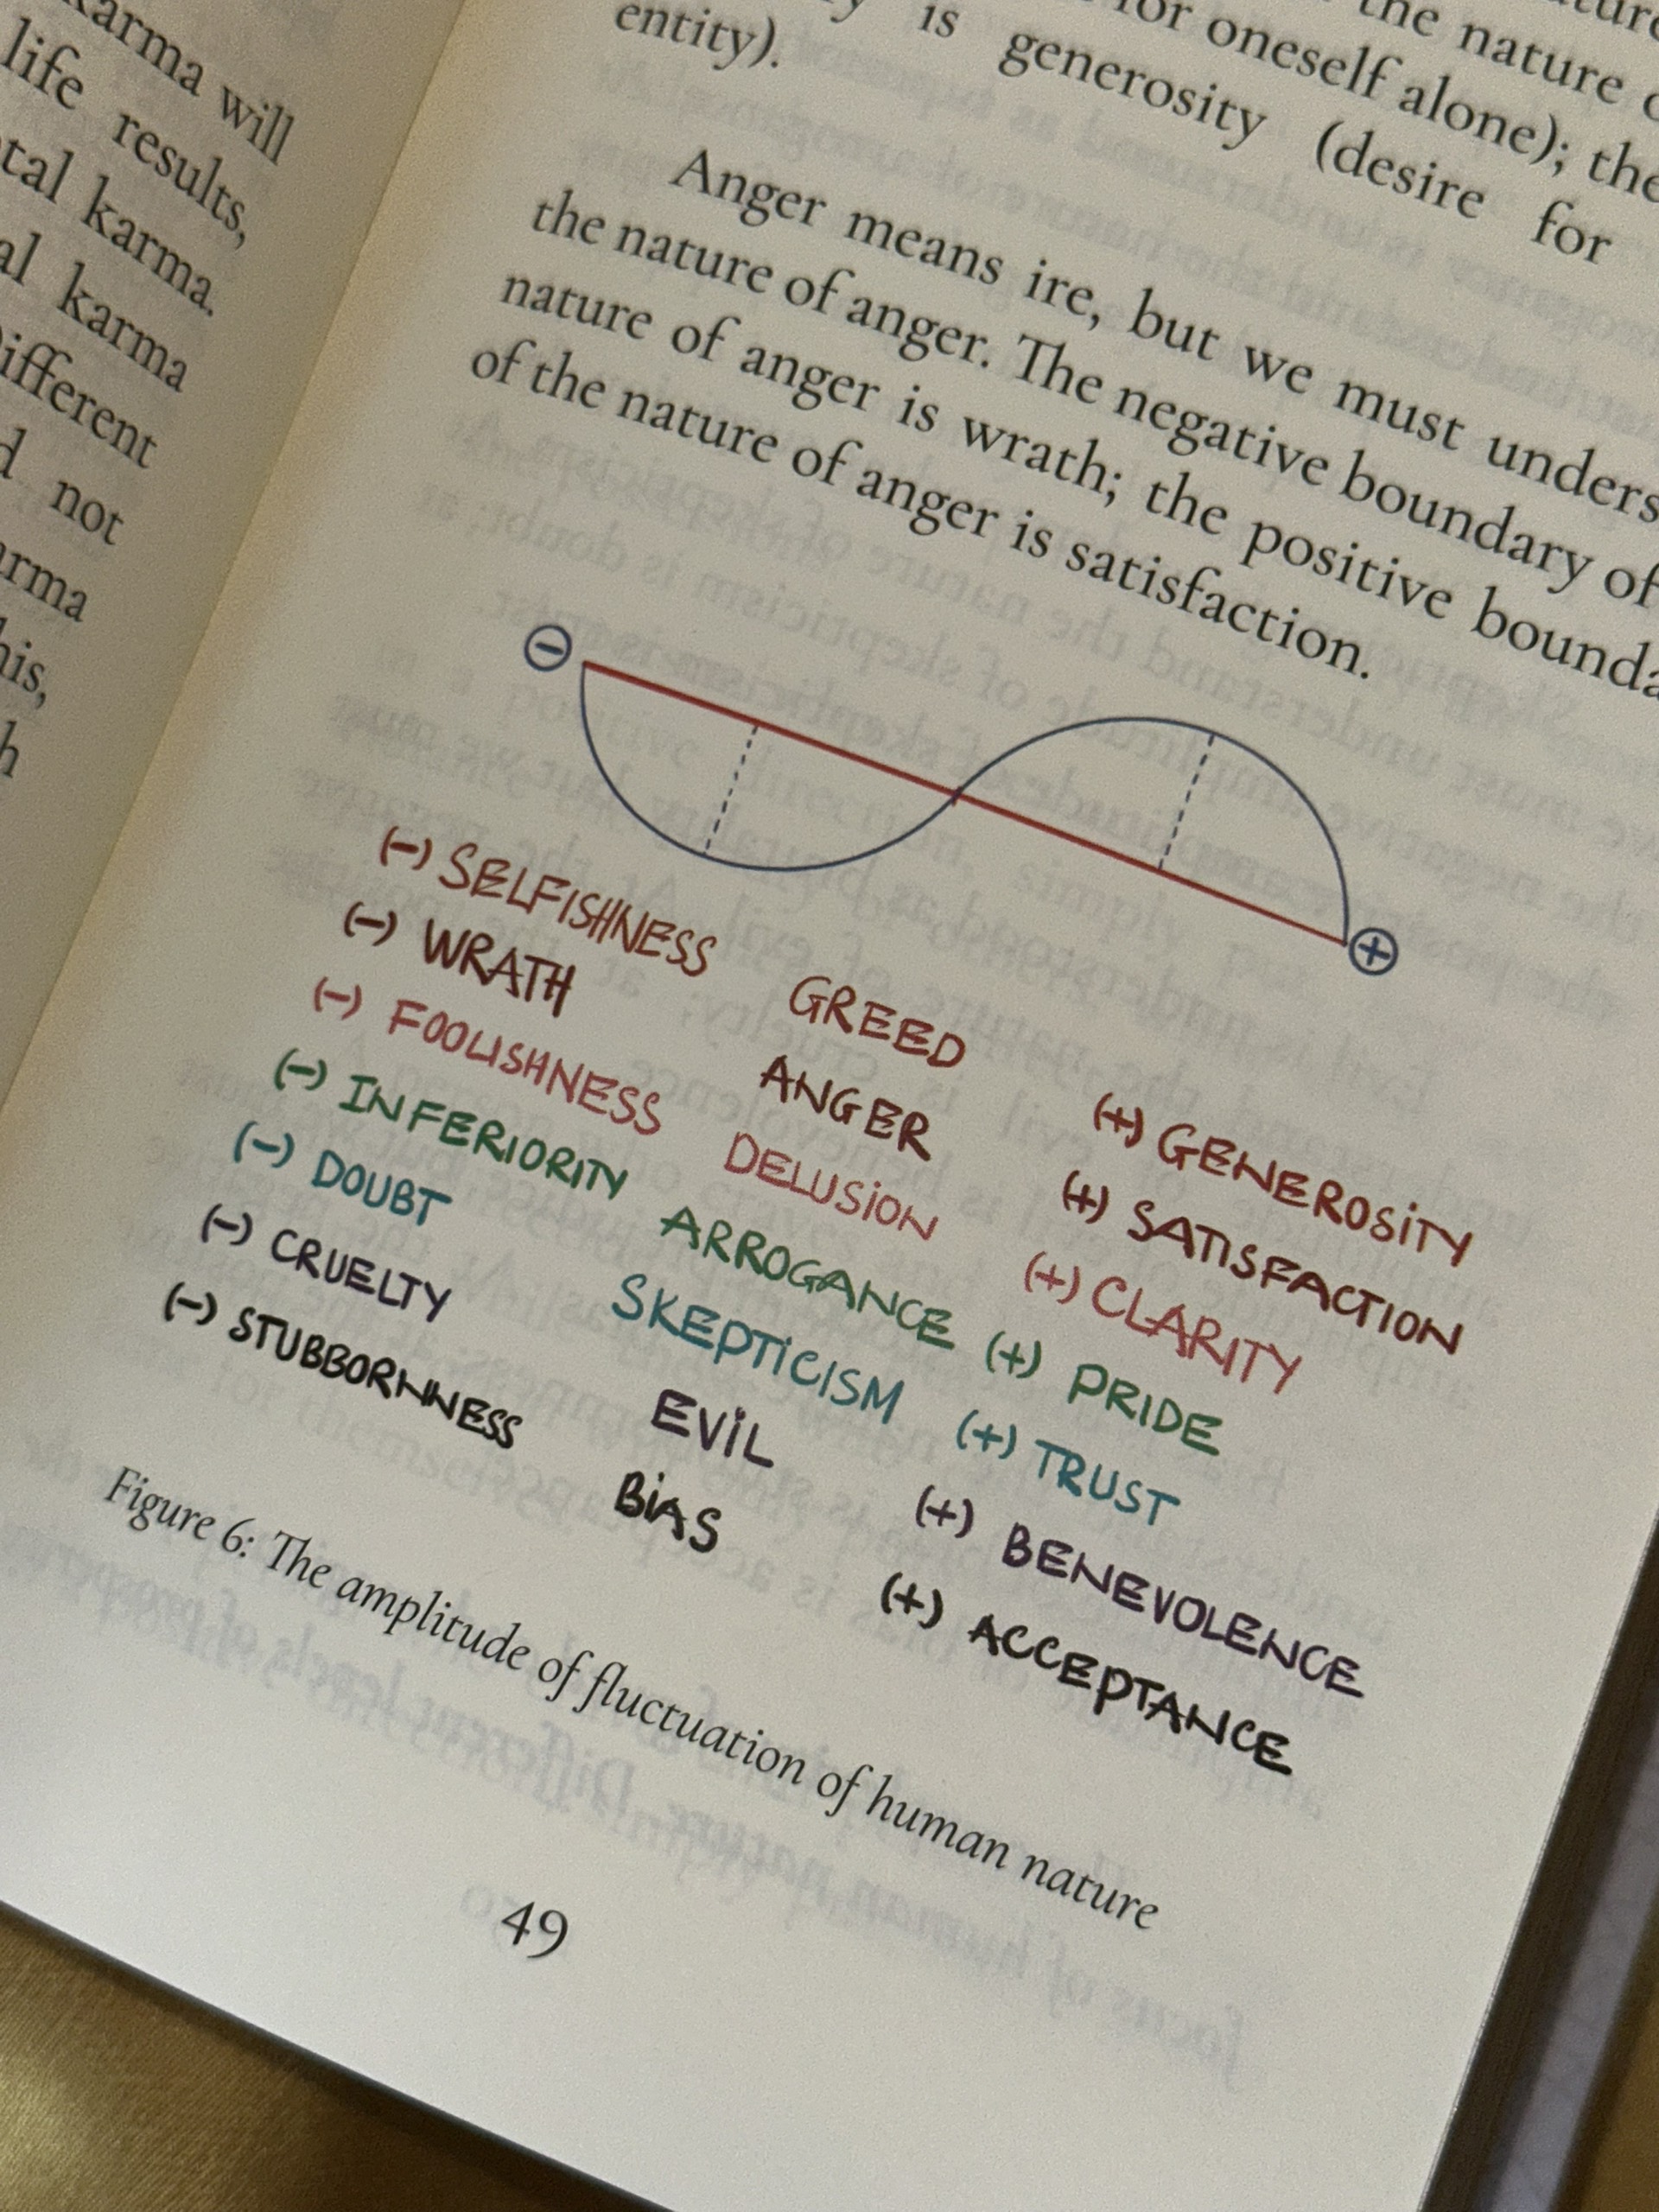 karma will
life results,
karma.
karma
different
not
h
the nature
for oneself alone); the
is generosity (desire for
entity).
Anger means ire, but we must
the nature of anger. The negative boundary of
nature of anger is wrath; the positive
of the nature of anger is satisfaction.
− +
(−) SELFISHNESS GREED (+) GENEROSITY
(−) WRATH ANGER (+) SATISFACTION
(−) FOOLISHNESS DELUSION (+) CLARITY
(−) INFERIORITY ARROGANCE (+) PRIDE
(−) DOUBT SKEPTICISM (+) TRUST
(−) CRUELTY EVIL (+) BENEVOLENCE
(−) STUBBORNNESS BIAS (+) ACCEPTANCE
Figure 6: The amplitude of fluctuation of human nature
49